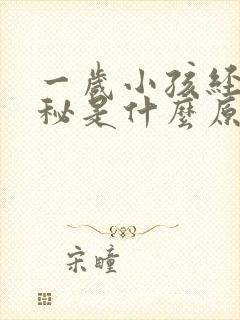 一歲小孩經
秘是什麼原
宋瞳